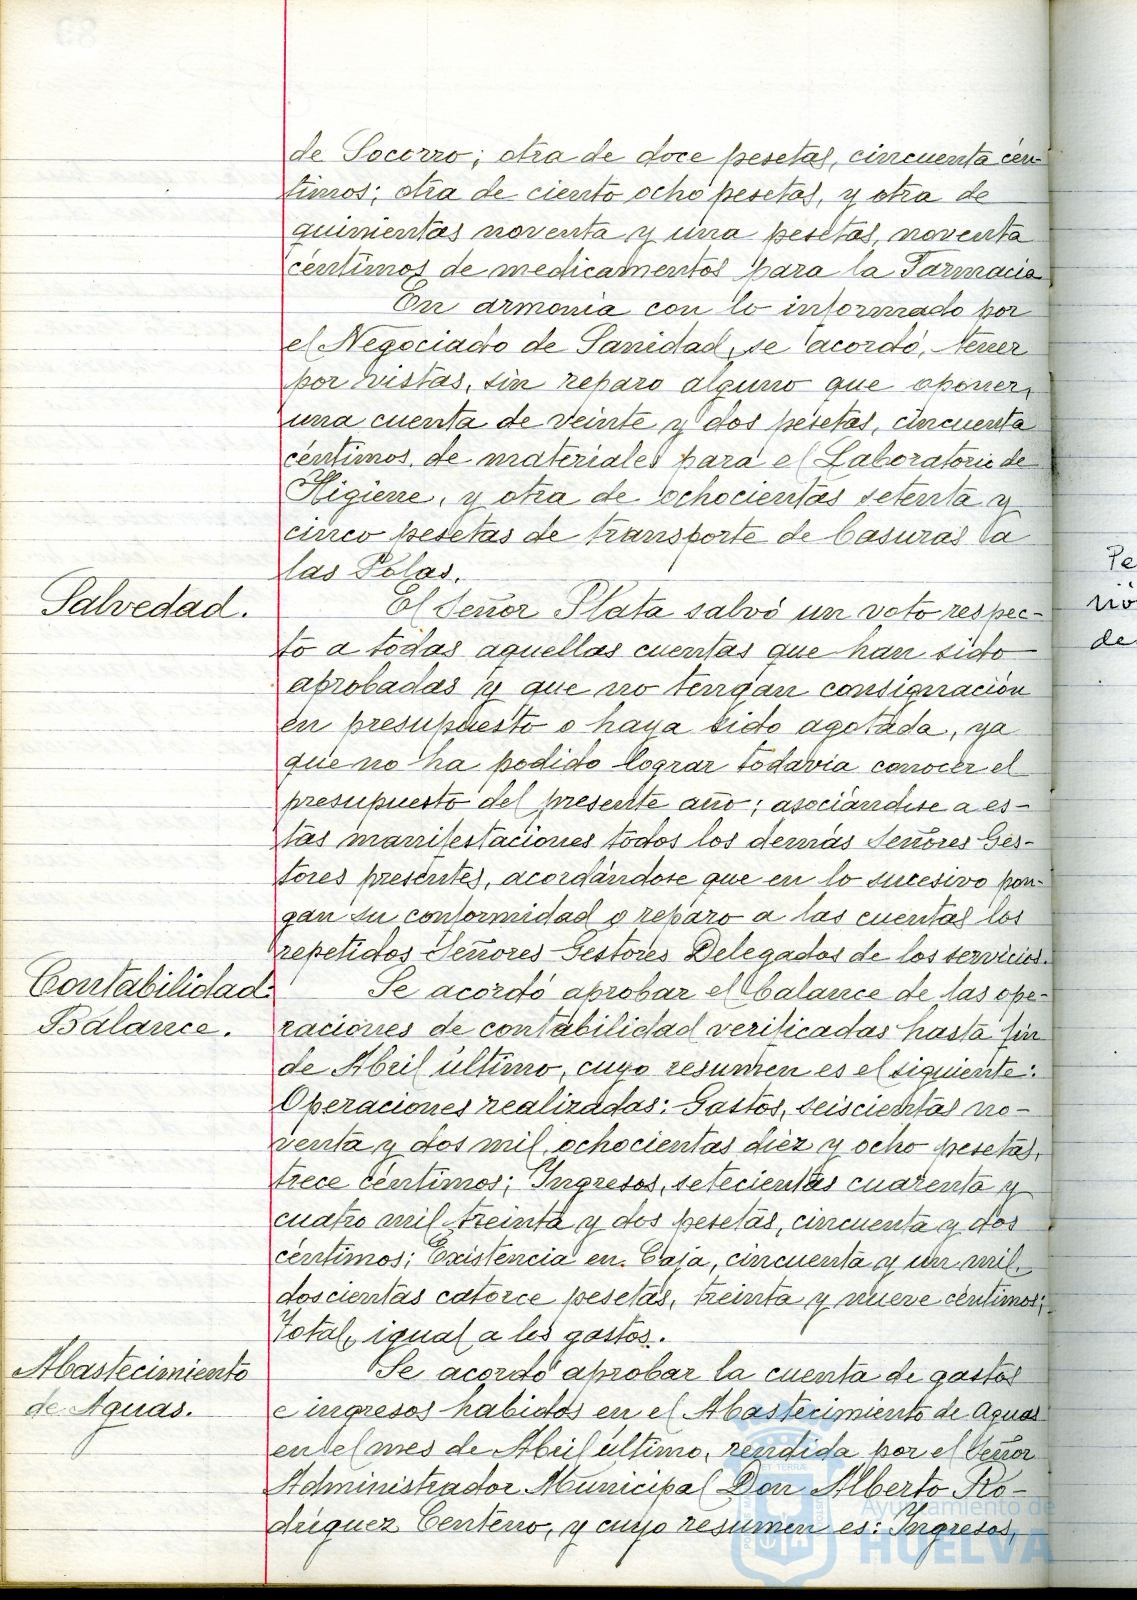 de Socorro; otra de doce pesetas, cincuenta cén-
timos; otra de ciento ocho pesetas, y otra de
quinientas noventa y una pesetas, noventa
céntimos de medicamentos para la Farmacia
En armonia con lo informado por
el Negociado de Sanidad, se acordó, tener
por vistas, sin reparo alguno que oponer,
una cuenta de veinte y dos pesetas, cincuenta
céntimos, de materiales para el Laboratorio de
Higiene, y otra de ochocientas setenta y
cinco pesetas de transporte de basuras a
las Polas.
Salvedad.
El Señor Plata salvó un voto respec-
to a todas aquellas cuentas que han sido
aprobadas y que no tengan consignación
en presupuesto o haya sido agotada, ya
que no ha podido lograr todavia conocer el
presupuesto del presente año; asociándose a es-
tas manifestaciones todos los demás Señores Ges-
tores presentes, acordándose que en lo sucesivo pon-
gan su conformidad o reparo a las cuentas los
repetidos Señores Gestores Delegados de los servicios.
Contabilidad:
Balance.
Se acordó aprobar el balance de las ope-
raciones de contabilidad verificadas hasta fin
de Abril último, cuyo resumen es el siguiente:
Operaciones realizadas: Gastos, seiscientas no-
venta y dos mil, ochocientas diez y ocho pesetas,
trece céntimos; Ingresos, setecientas cuarenta y
cuatro mil treinta y dos pesetas, cincuenta y dos
céntimos; Existencia en Caja, cincuenta y un mil,
doscientas catorce pesetas, treinta y nueve céntimos;
Total, igual a los gastos.
Abastecimiento
de Aguas.
Se acordó aprobar la cuenta de gastos
e ingresos habidos en el Abastecimiento de Aguas
en el mes de Abril último, rendida por el Señor
Administrador Municipal Don Alberto Ro-
dríguez Centeno, y cuyo resumen es: Ingresos,
Pe
nió
de
Ayuntamiento de
HUELVA